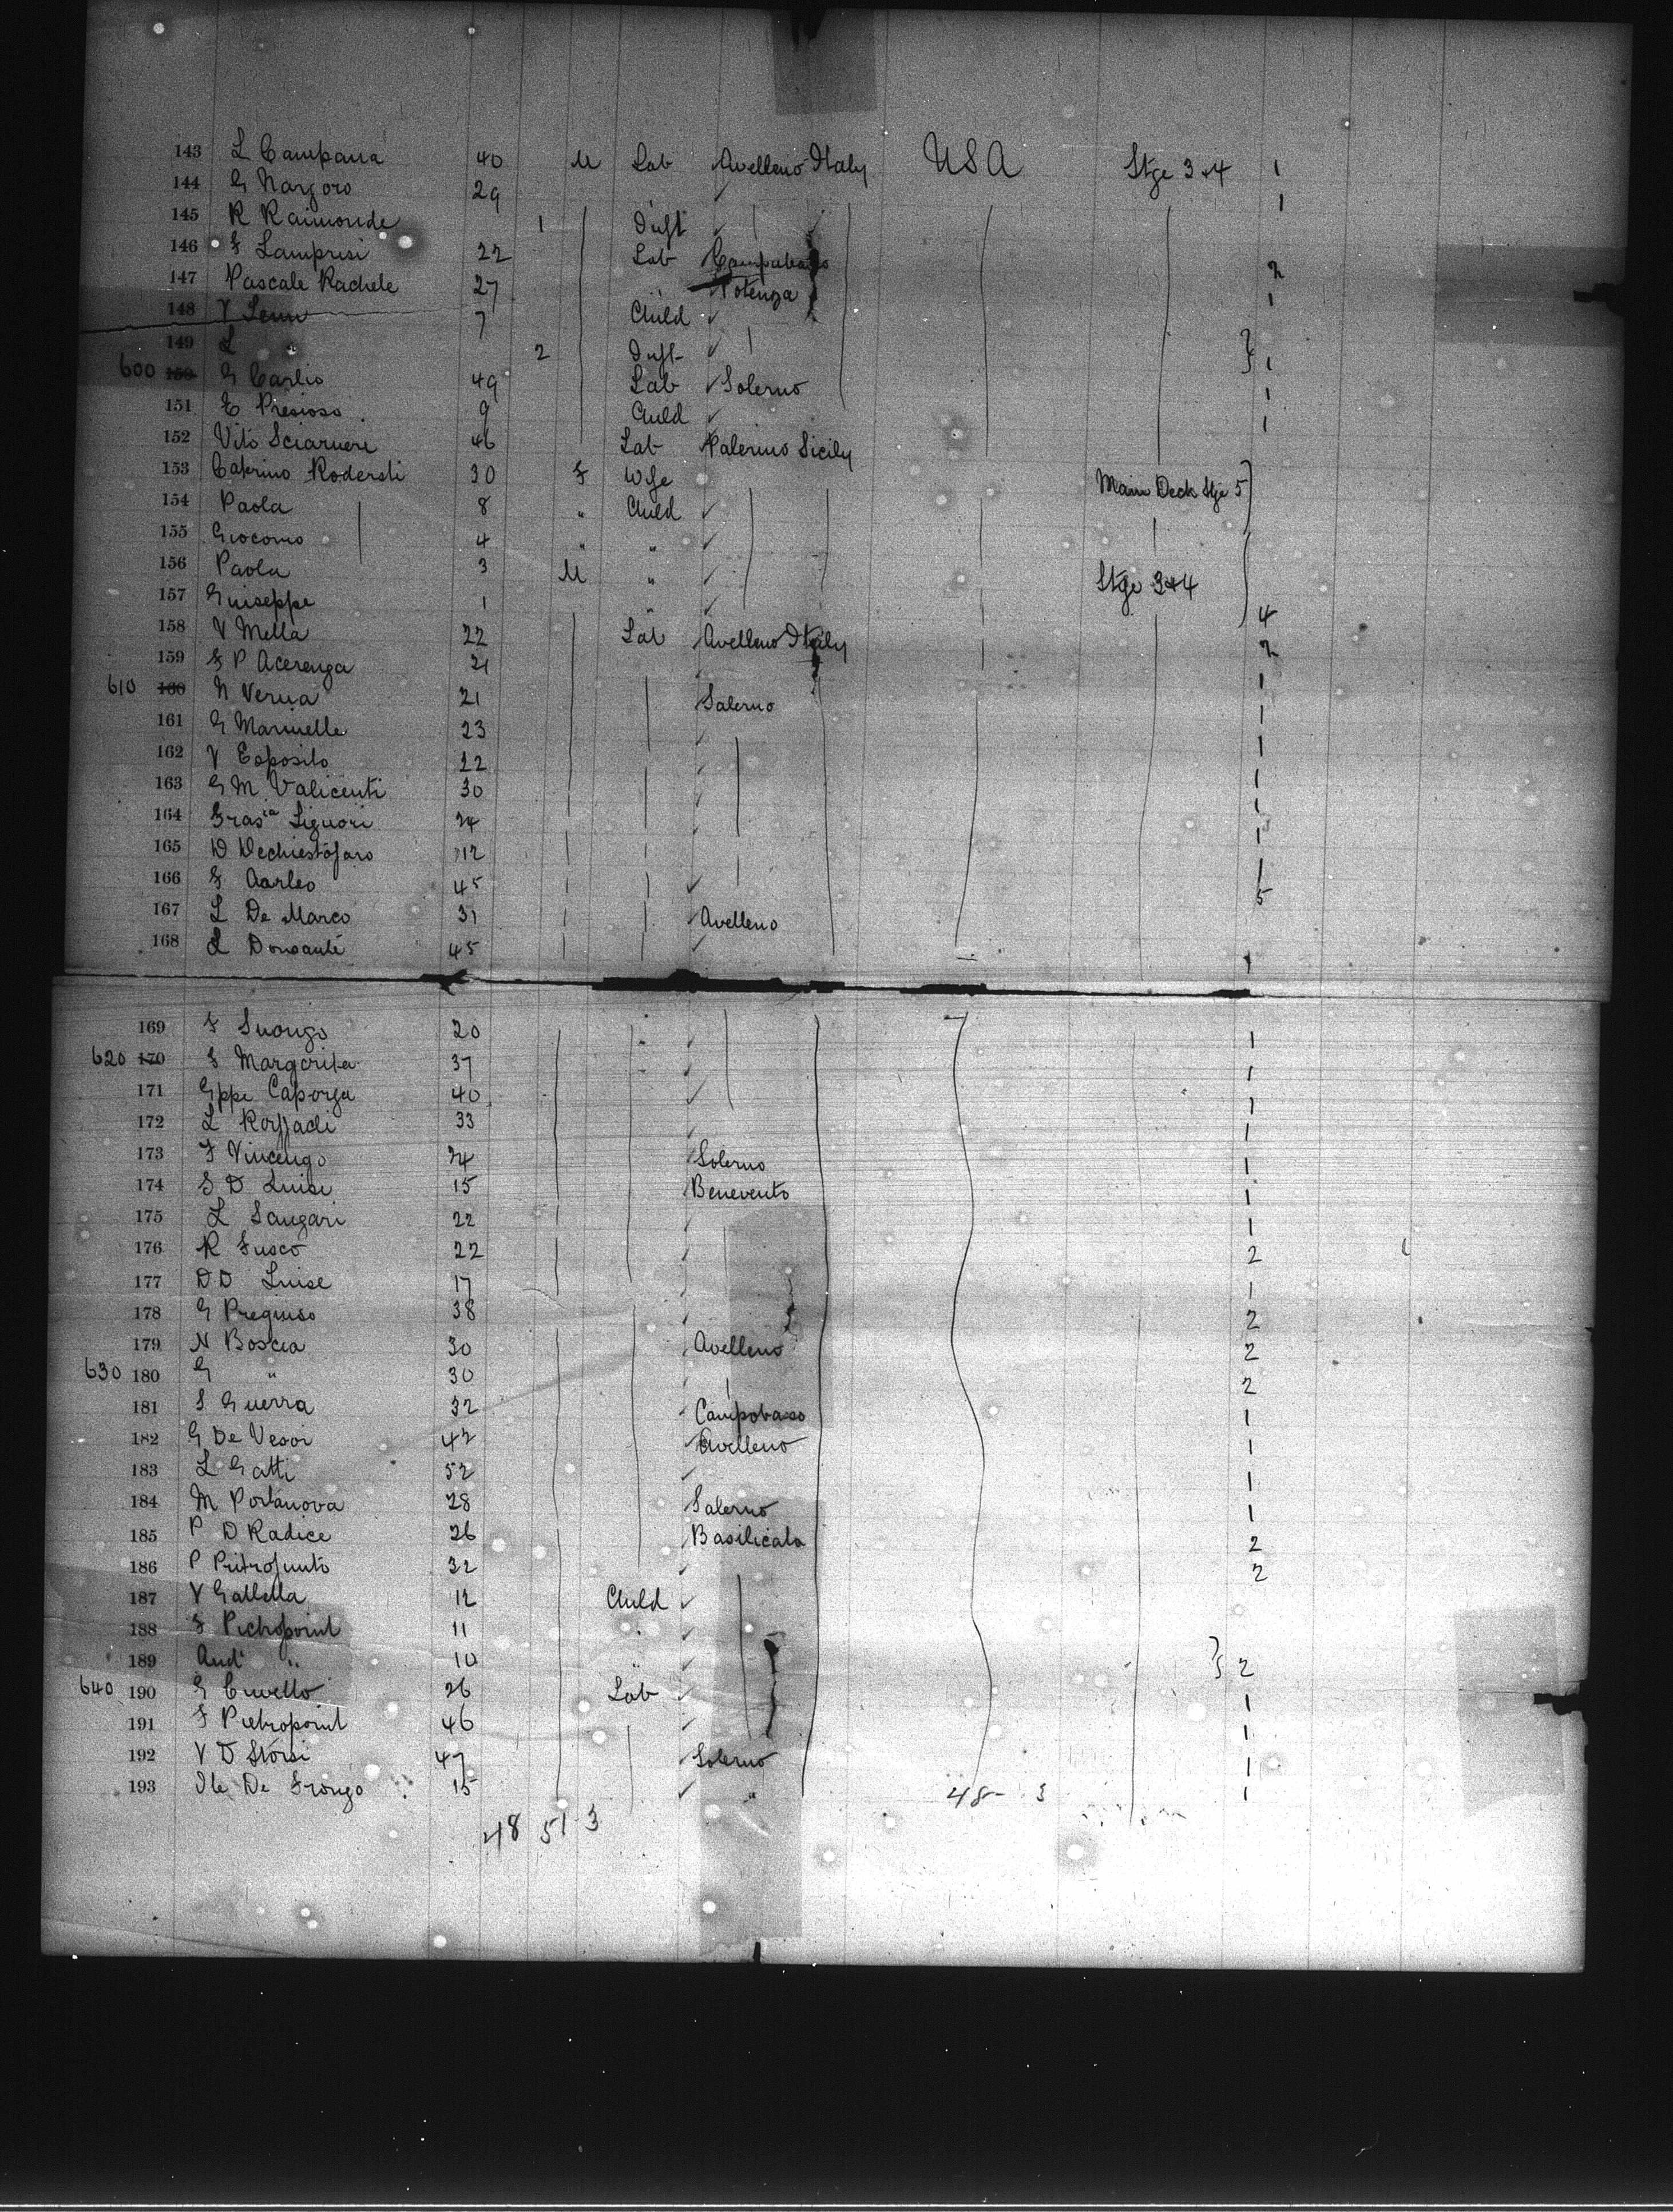 143 L Campana 40 M Lab Avelleno Italy USA Stge 3+4 1
144 G Nargoro 29 1
145 R Raimonde 1 Inft
146 F Lamprisi 22 Lab Campobasso 2
147 Pascale Rachele 27 " Potenza 1
148 V 7 Child
149 L " 2 Inft
600 150 G Carlio 49 Lab Solerno 1
151 E Presioso 9 Child 1
152 Vito Sciarneri 46 Lab Palermo Sicily
153 Caterino Rodersti 30 F Wife Main Deck Stge 5
154 Paola 8 " Child
155 Giocomo 4 " "
156 Paola 3 M " Stge 3+4
157 Guiseppe 1 " 4
158 V Mella 22 Lab Avelleno Italy 2
159 F P Acerenza 21 1
610 160 N Verua 21 Salerno 1
161 G Marinelle 23 1
162 V Esposito 22 1
163 G M Valicenti 30 1
164 Grasia Liguori 24 1
165 D Dechrestofaro 12 1
166 F Aarleo 45 5
167 L De Marco 31 Avelleno
168 L Donsante 45 1
169 F Suongo 20 1
620 170 F Margarita 37 1
171 Gppe Caporza 40 1
172 L 33 1
173 F Vincenzo 24 Solerno 1
174 S D Luise 15 Benevento 1
175 L Sangari 22 1
176 R Fusco 22 2
177 D D Luise 17 1
178 G 38 2
179 N Boscia 30 Avelleno 2
630 180 G " 30 2
181 S Guerra 32 Campobasso 1
182 G De Vesoi 42 Avelleno 1
183 L Gatti 52 1
184 M Portanova 28 Salerno 1
185 P D Radice 26 Basilicata 2
186 P 32 2
187 V Gallella 12 Child
188 F Pietropoint 11 "
189 And " 10 " 2
640 190 G Cuvello 26 Lab 1
191 F Pietropoint 46 1
192 V D Storsi 47 Solerno 1
193 De Frongo 15 " 48 3 1
48 51 3